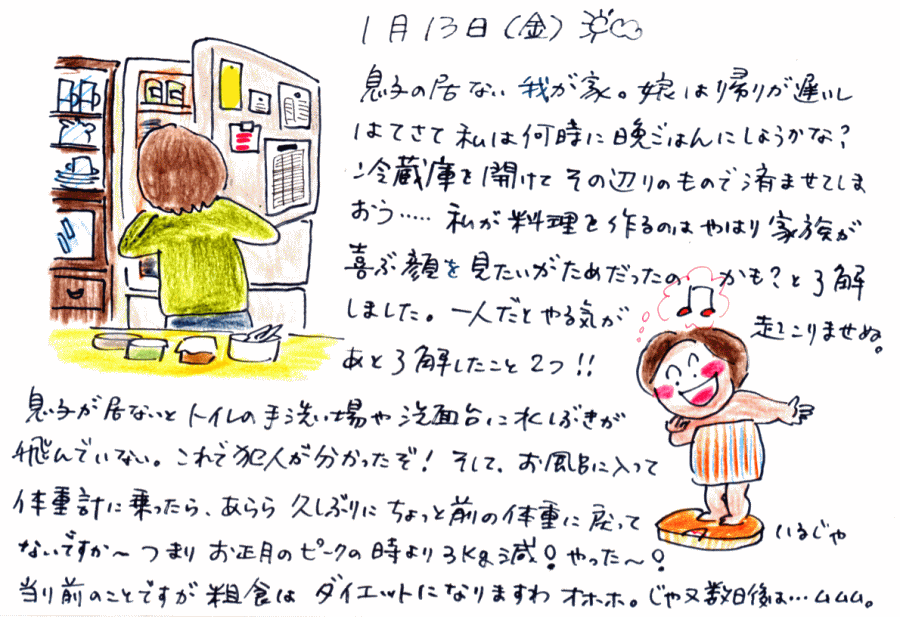 1月13日(金)
息子の居ない 我が家。娘は帰りが遅いし
はてさて 私は何時に晩ごはんにしようかな?
冷蔵庫を開けて その辺りのもので済ませてしま
おう…… 私が料理を作るのは やはり 家族が
喜ぶ顔を見たいがためだったのかも?と了解
しました。一人だと やる気が 起こりませぬ。
あと了解したこと 2つ!!
息子が居ないと トイレの手洗い場や 洗面台に水しぶきが
飛んでいない。これで犯人が分かったぞ! そして、お風呂に入って
体重計に乗ったら、あらら 久しぶりに ちょっと前の体重に 戻って いるじゃ
ないですか〜 つまり お正月のピークの時より 3Kg減! やった〜!
当り前のことですが 粗食は ダイエットになりますわ オホホ。じゃ又数日後は… ムムム。